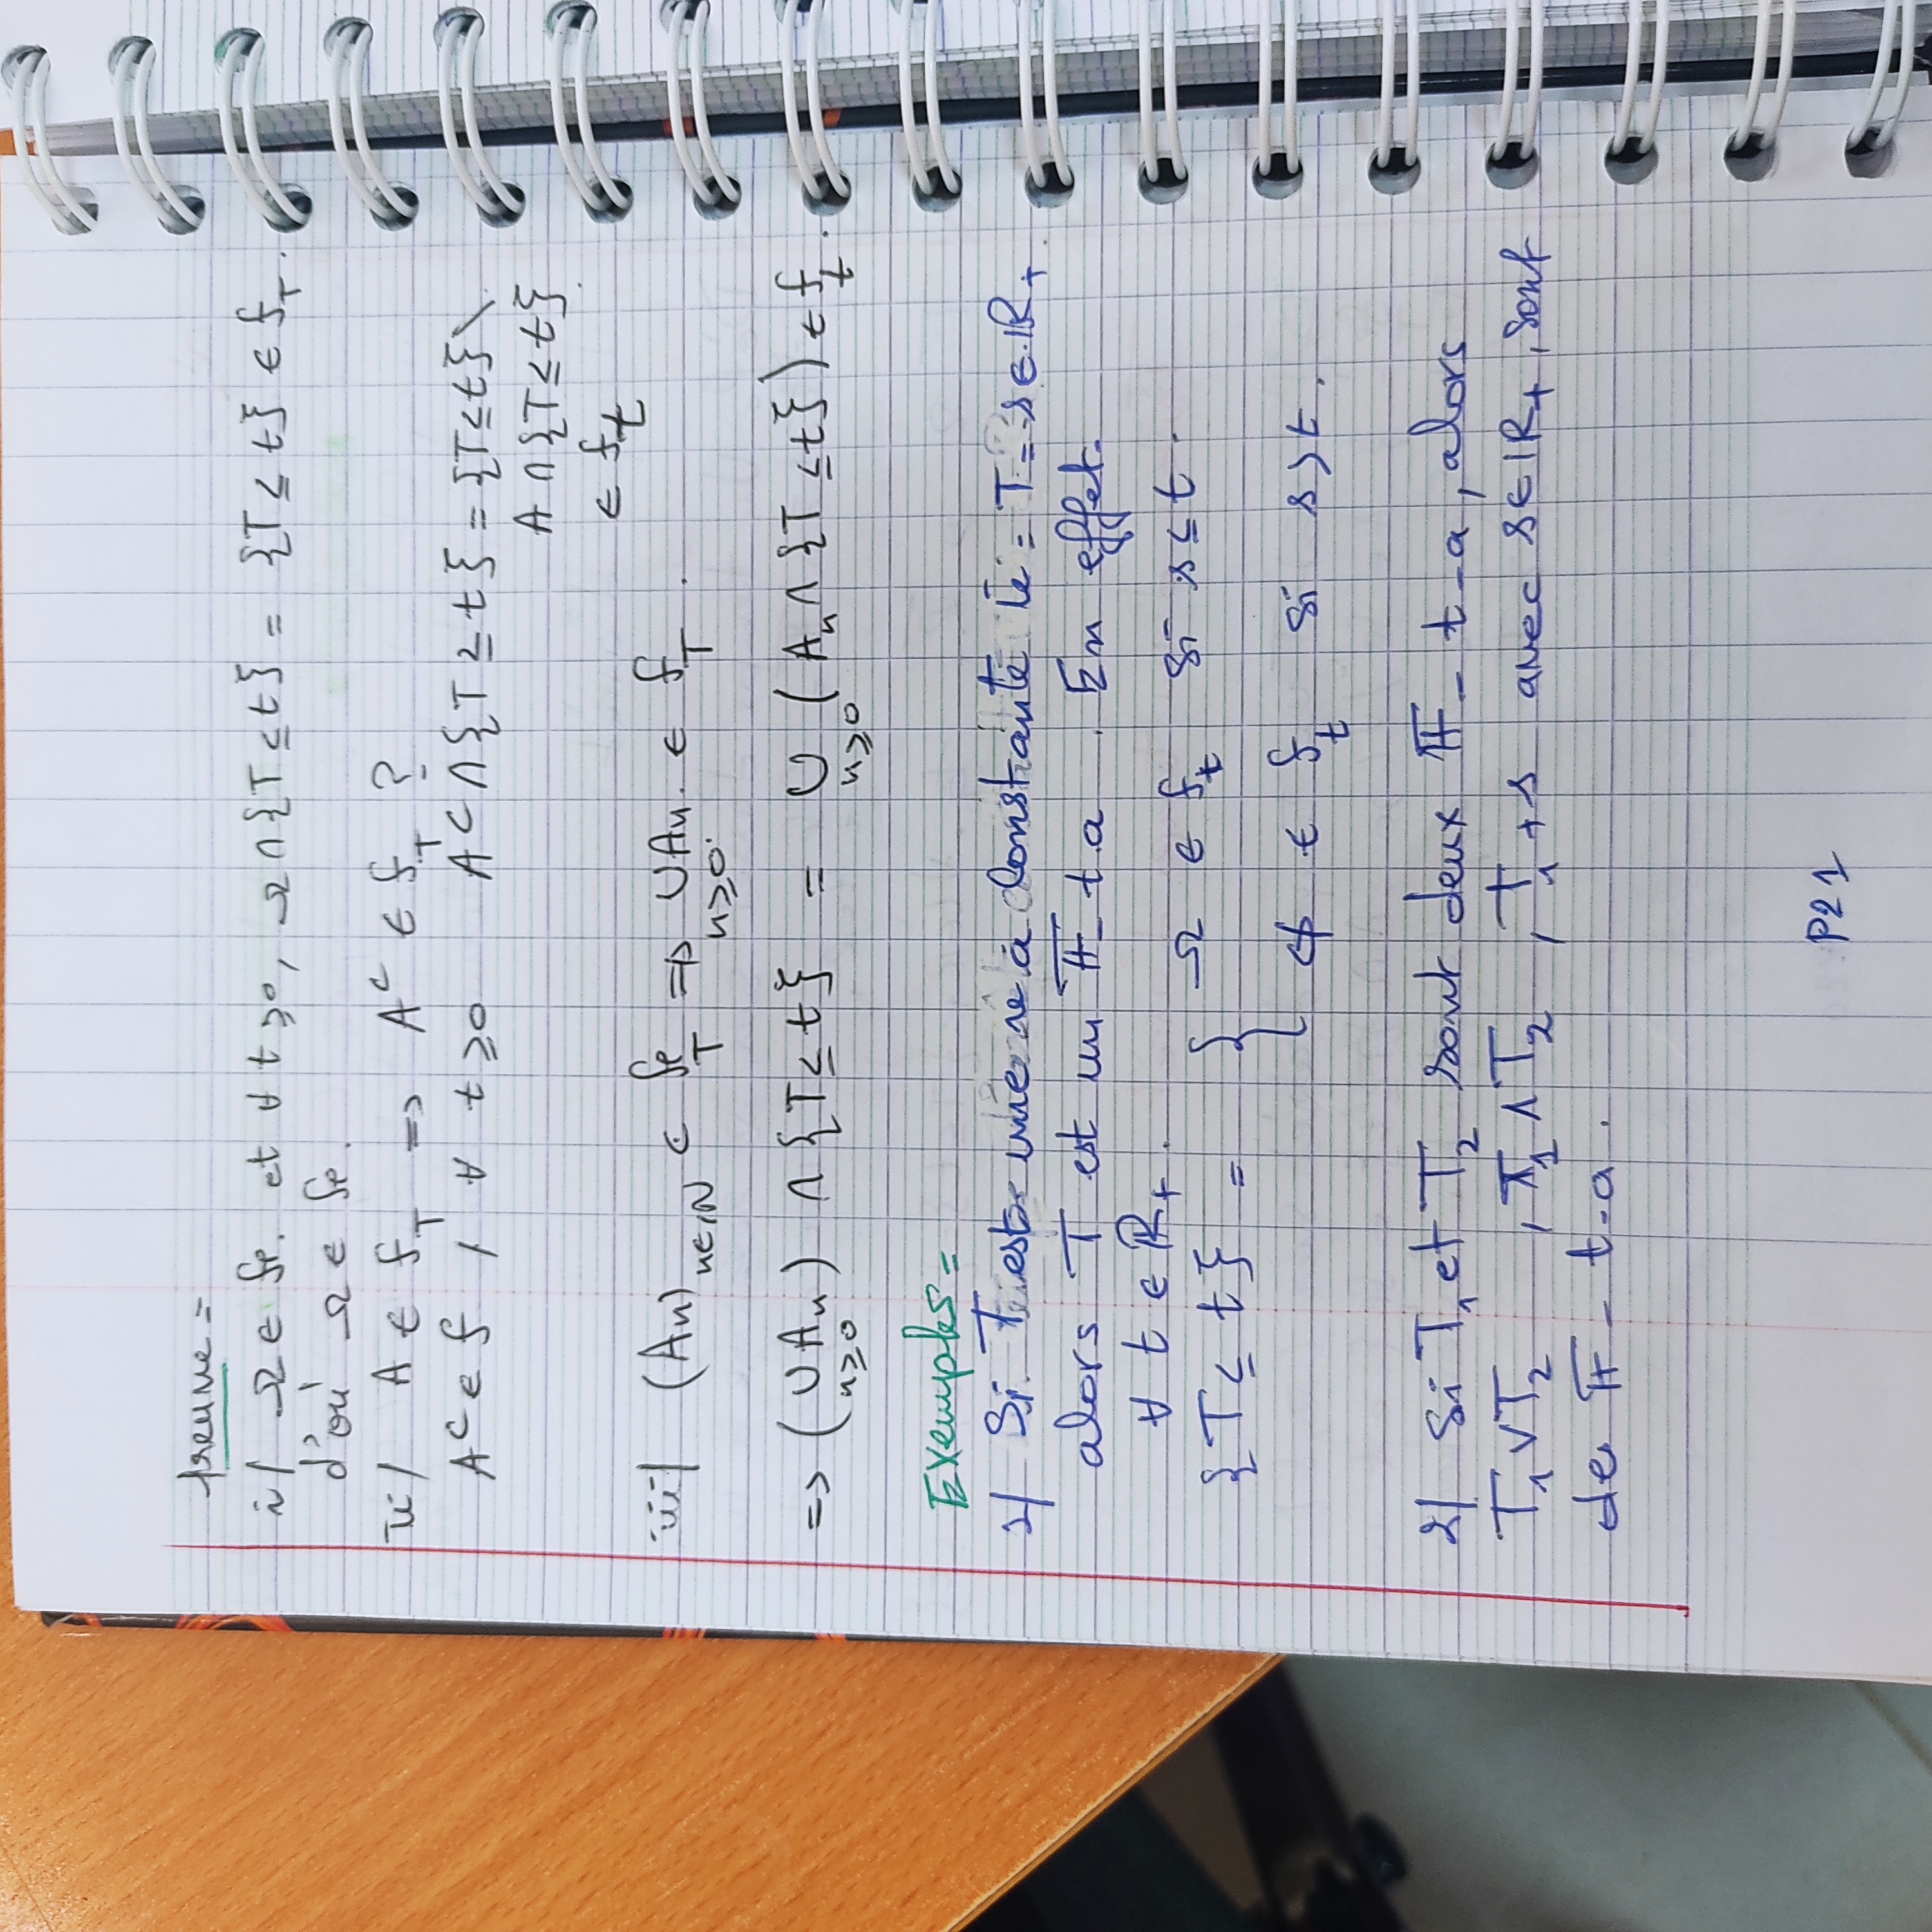 preuve =
i/ Ω ∈ fe. et ∀ t ≥ 0, Ω ∩ {T ≤ t} = {T ≤ t} ∈ f_T.
d'où Ω ∈ fe.
ii/ A ∈ f_T => A^c ∈ f_T ?
A^c ∈ f , ∀ t ≥ 0 A^c ∩ {T ≥ t} = {T ≤ t} \
A ∩ {T ≤ t}
∈ f_t
iii/ (An)_{n∈ℕ} ⊂ fe_T => ∪_{n≥0} An. ∈ f_T.
=> (∪_{n≥0} An) ∩ {T ≤ t} = ∪_{n≥0} (An ∩ {T ≤ t}) ∈ f_t.
Exemples =
1/ Si T est une v a constante ie = T = s ∈ ℝ+
alors T est un 𝔽- t.a . En effet
∀ t ∈ ℝ+.
{T ≤ t} = { Ω ∈ f_t si s ≤ t.
ϕ ∈ f_t si s > t.
2/ Si T1 et T2 sont deux 𝔽- t-a, alors
T1 ∨ T2 , T1 ∧ T2 , T1 + s avec s ∈ ℝ+, sont
de 𝔽- t-a.
P21